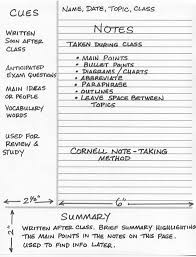 CUES
NAME, DATE, TOPIC, CLASS
NOTES
WRITTEN
SOON AFTER
CLASS
ANTICIPATED
EXAM QUESTIONS
MAIN IDEAS
OR PEOPLE
VOCABULARY
WORDS
USED FOR
REVIEW &
STUDY
TAKEN DURING CLASS
• MAIN POINTS
• BULLET POINTS
• DIAGRAMS/CHARTS
• ABBREVIATE
• PARAPHRASE
• OUTLINES
• LEAVE SPACE BETWEEN
TOPICS
CORNELL NOTE-TAKING
METHOD
2½"
6"
SUMMARY
2"
WRITTEN AFTER CLASS. BRIEF SUMMARY HIGHLIGHTING
THE MAIN POINTS IN THE NOTES ON THIS PAGE.
USED TO FIND INFO LATER.